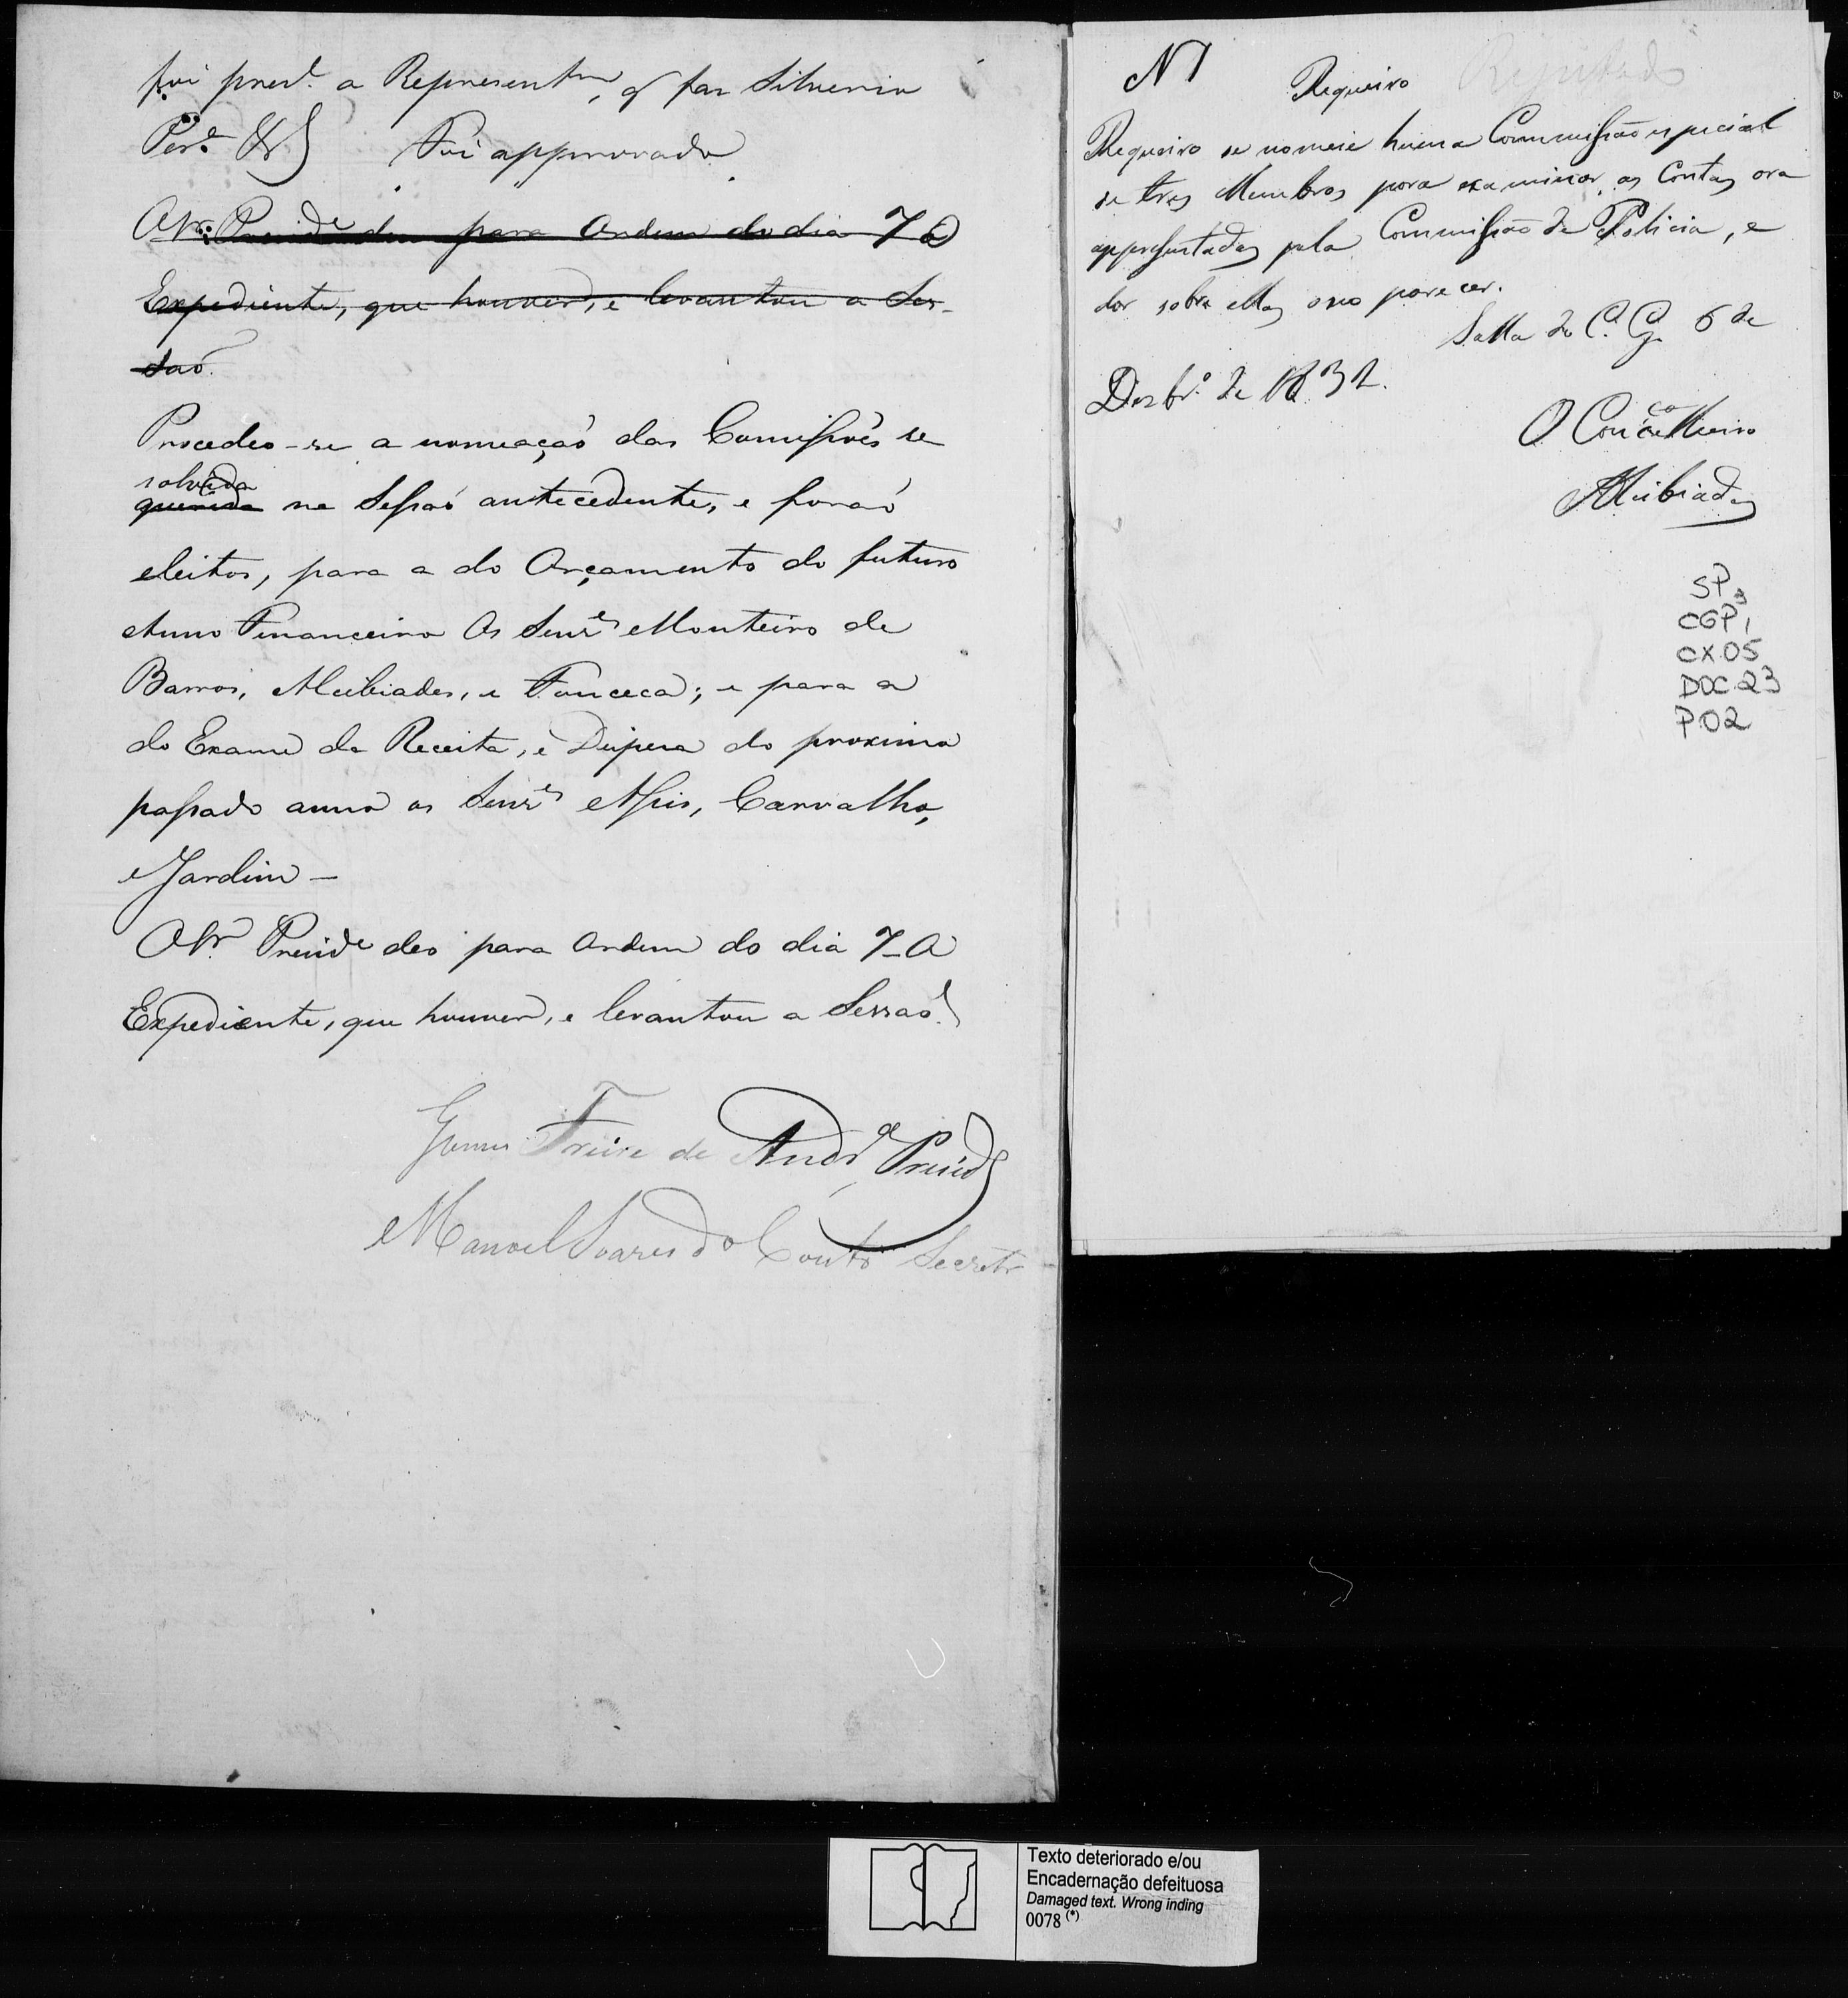 foi pres.e a Represent.am, q faz Silveria
Per.a &
Foi approvado
O Sr. Presid.e deu para Ordem do dia 7 O
Expediente, que houver, e levantou a Ses-
saó.
Procedeo-se a nomeaçaó das Comissoẽs re
solvida
querida na Sessaó antecedente, e foraó
eleitos, para a do Orçamento do futuro
Anno Financeiro Os Senr.es Monteiro de
Barros, Alcibiades, e Fonceca; e para a
do Exame da Receita, e Despesa do proximo
passado anno os Senr.es Assis, Carvalho,
e Jardim -
O Sr. Presid.e deo para Ordem do dia 7 - O
Expediente, que houver, e levantou a Sessaó.
Gomes Freire de Andr.e Presid.
Manoel Soares do Couto Secretr.
N 1
Requeiro
Rejeitado
Requeiro se nomeie huma Commissão especial
de tres Membros para examinar as Contas ora
appresentadas pela Commissão de Policia, e
dar sobre ellas o seo parecer.
Salla do C. G. 6 de
Dezbr.o de 1832.
O Conselheiro
Alcibiades
SP
CGP 1
CX.05
DOC.23
P.02
Texto deteriorado e/ou
Encadernação defeituosa
Damaged text. Wrong inding
0078 (*)